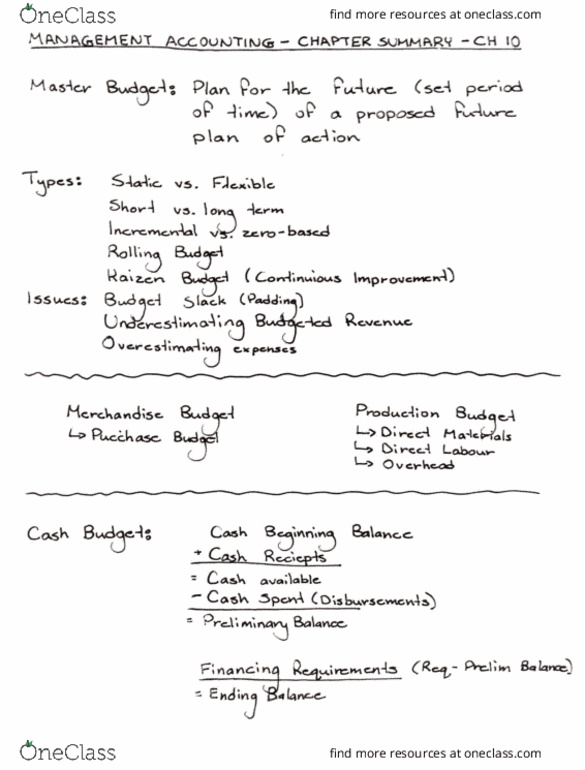 OneClass
find more resources at oneclass.com
MANAGEMENT ACCOUNTING - CHAPTER SUMMARY - CH 10
Master Budget: Plan for the future (set period
of time) of a proposed future
plan of action
Types: Static vs. Flexible
Short vs. long term
Incremental vs. zero-based
Rolling Budget
Kaizen Budget (Continuious Improvement)
Issues: Budget Slack (Padding)
Underestimating Budgeted Revenue
Overestimating expenses
Merchandise Budget
↳ Pucchase Budget
Production Budget
↳ Direct Materials
↳ Direct Labour
↳ Overhead
Cash Budget: Cash Beginning Balance
+ Cash Reciepts
= Cash available
- Cash Spent (Disbursements)
= Preliminary Balance
Financing Requirements (Req- Prelim Balance)
= Ending Balance
OneClass
find more resources at oneclass.com